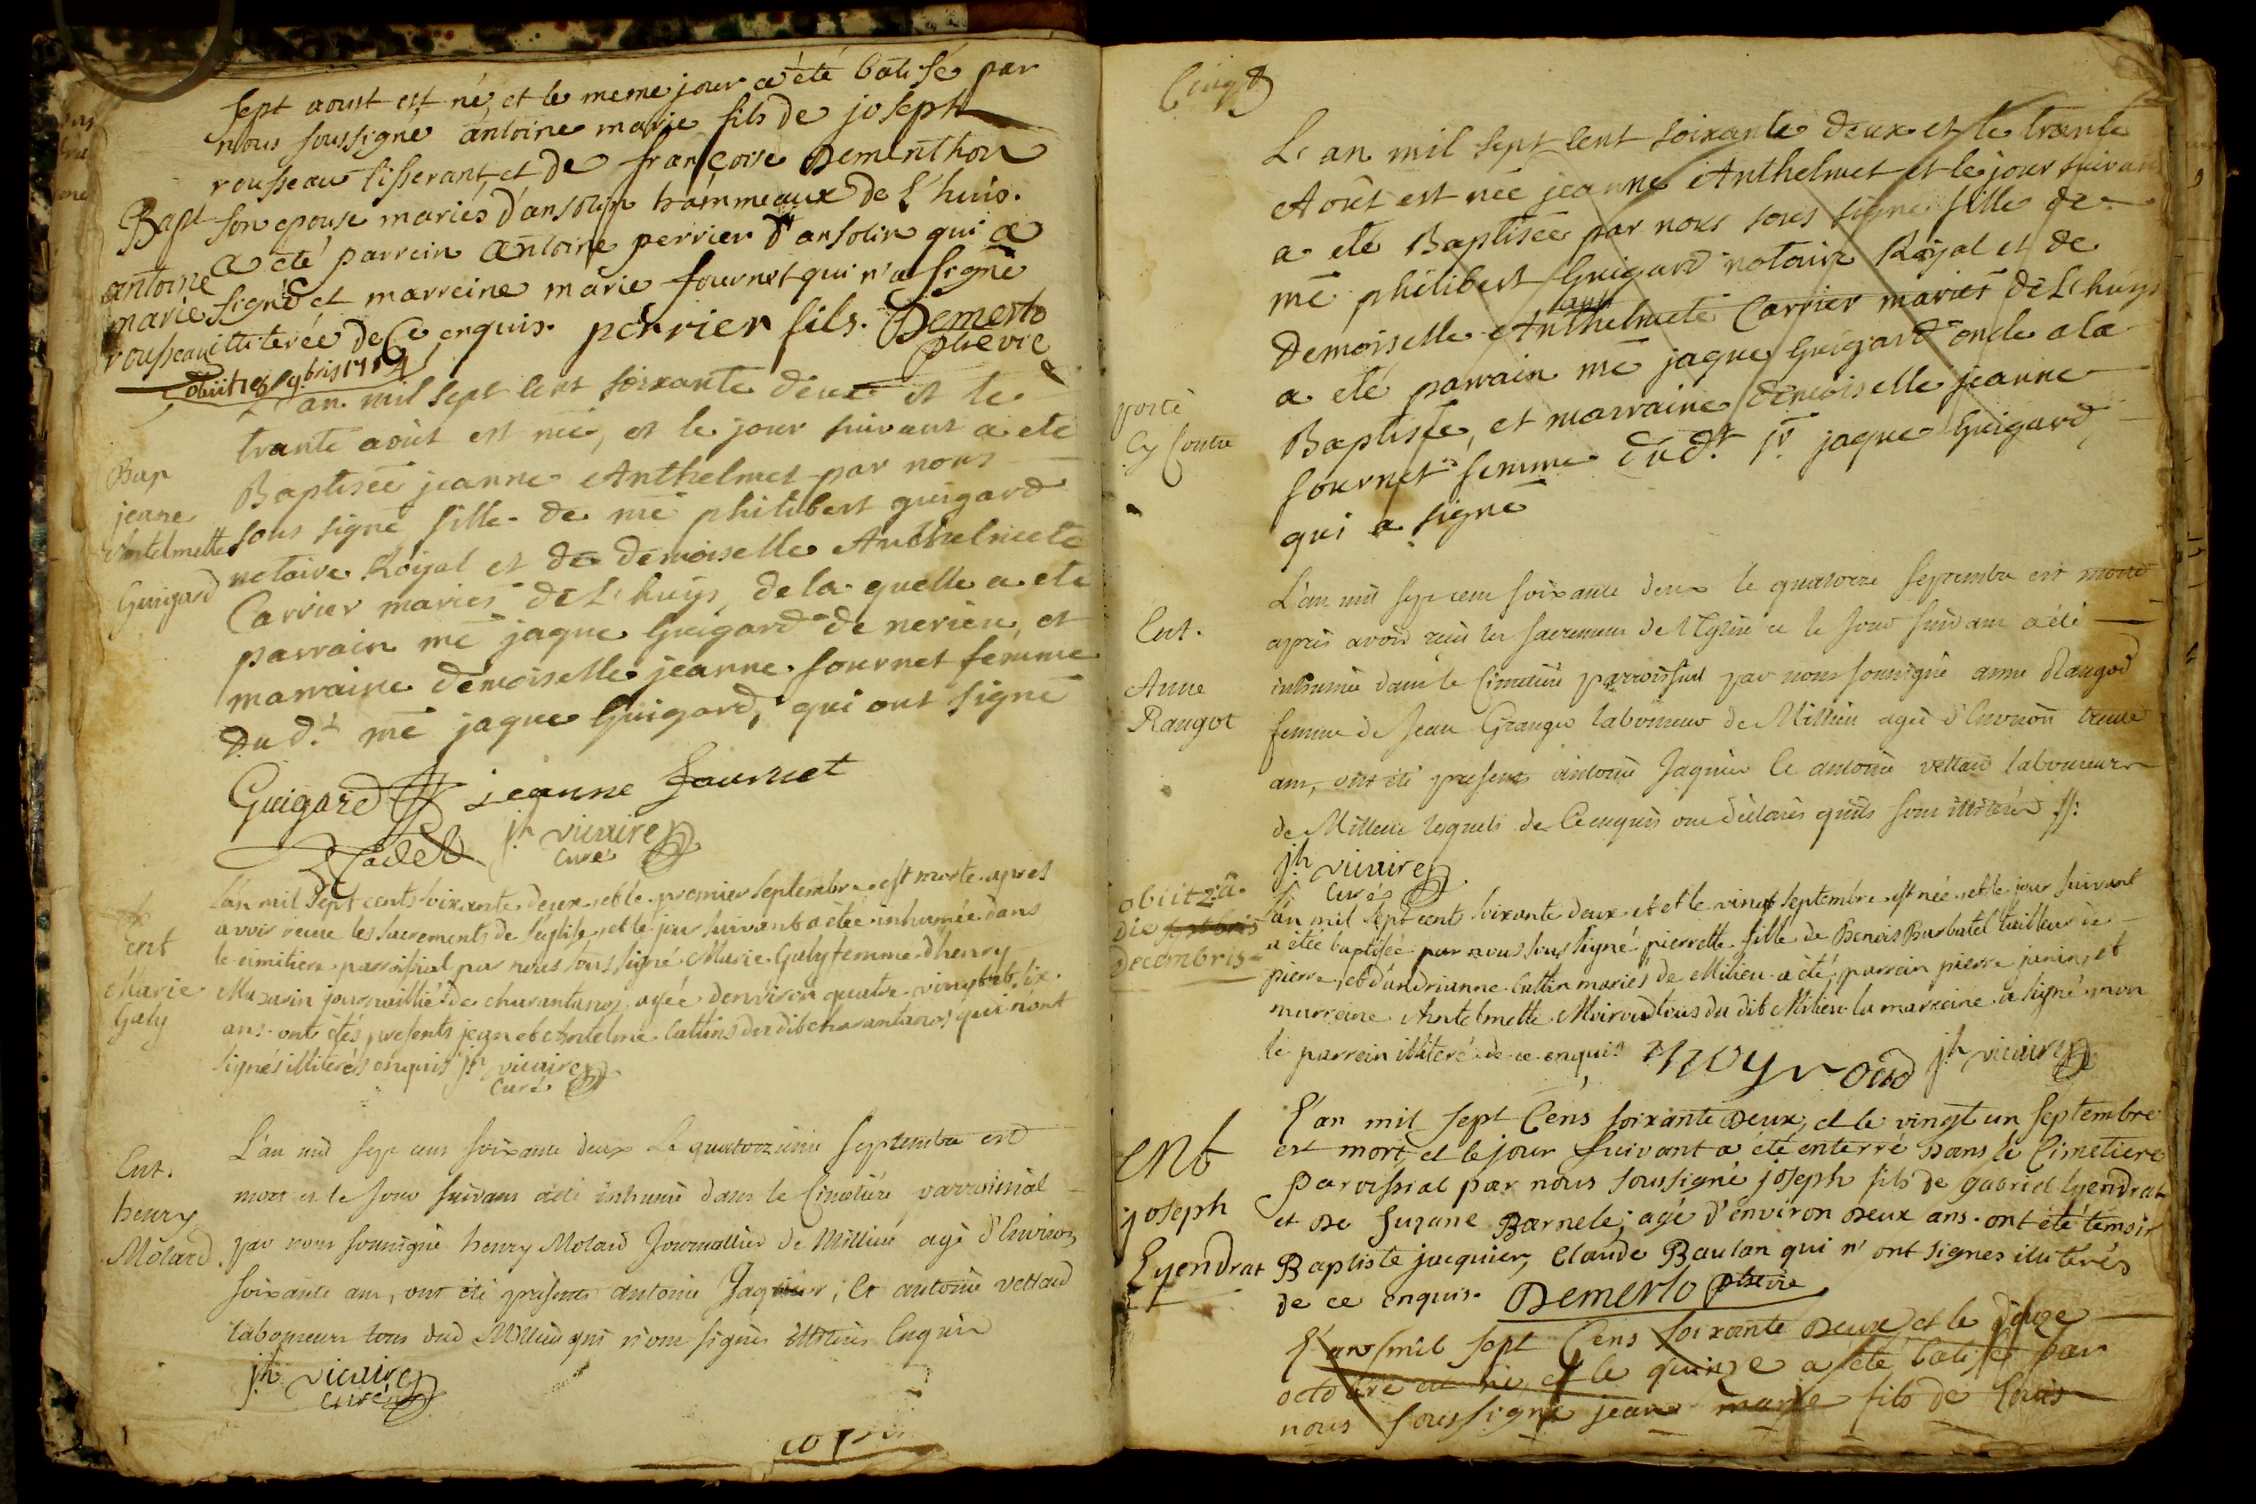 sept aoust est né, et le meme jour a été batisé par
nous soussigné antoine marie fils de joseph
rousseau tisserant, et de françoise Dementhon
Bapt
son epouse mariés d'ansolin hammeaux de L'huis.
a été parrein antoine perrier d'ansolin qui a
antoine
signé et marreine marie fournet qui n'a signé
marie
illiterée de Ce enquis. perrier fils. Demerlo
rousseau
ptre vic
obiit 9bris
L'an mil sept cent soixante deux et le
trante août est née, et le jour suivant a eté
Bap
Baptisée jeanne Anthelmet par nous
jeanne
sous signé fille de mê philibert guigard
Antelmette
notaire Royal et de demoiselle Anthelmete
Guigard
Carrier mariés de L'huys, de la quelle a eté
parrain mê jaque Guigard de nerieu, et
marraine demoiselle jeanne fournet femme
du d.t mê jaque Guigard, qui ont signé
Guigard jeanne fournet
jh vicaire
curé
L'an mil Sept cents soixante deux et le premier septembre est morte apres
avoir recue les sacrements de l'eglise et le jour suivant a étée inhumée dans
ent
le cimitiere parroissial par nous sous signé Marie Galy femme d'henry
Marie
Mazarin journaillié de charantanos agée d'environ quatre vingt six
Galy
ans ont étés presents jean et Antelme Cattins du dit charantanos qui n'ont
signés illiterés enquis jh vicaire
Curé
L'an mil sept cens soixante deux Le quatorzieme septembre est
Ent.
mort et le jour suivant a été inhumé dans le Cimetière parroissial
henry
par nous soussigné henry Molard Journallier de Millieu agé d'Environ
Molard.
soixante ans, ont été présents antoine Jaquier, et antoine vettard
laboureurs tous dud Millieu qui n'ont signés illitérés Enquis
jh vicaire
curé
L'an mil sept cent soixante deux et le trante
Août est née jeanne Anthelmet et le jour suivant
a eté Baptisée par nous sous signé fille de
mê philibert Guigard notaire Royal et de
demoiselle Anthelmete Carrier mariés de L'huys
a eté parrain mê jaque Guigard oncle a la
porté
Baptisée, et marraine demoiselle jeanne
Cy Contre
fournet femme du d.t sr. jaque Guigard,
qui a signé
L'an mil sept cent soixante deux le quatorze septembre est morte
Ent.
après avoir reçu les sacremens de l'Eglise et le jour suivant a été
Anne
inhumée dans le Cimetière parroissial par nous soussigné anne Rangod
Rangot
femme de Jean Granger laboureur de Millieu agée d'Environ trente
ans, ont été présents antoine Jaquier et antoine vettard laboureurs
de Millieu lesquels de Ce enquis ont déclarés qu'ils sont illitérés
jh vicaire
curé
obiit 2a
L'an mil sept cents soixante deux et et le vingt septembre est née et le jour suivant
die
a étée baptisée par nous sous signé pierrette fille de Benois Burbatel tailleur de
decembris
pierre, et d'andrianne Cattin mariés de Milieu a été parrein pierre janin, et
marreine Antelmette Moiroud tous du dit Milieu la marreine a signé non
le parrein illiteré de ce enquis Moyroud jh vicaire
L'an mil sept Cens soixante Deux, et le vingt un septembre
ent
est mort, et le jour suivant a été enterré Dans le Cimetiere
Paroissial par nous soussigné joseph fils de gabriel Lyendrat
joseph
et De suzane Barnele; agé d'environ Deux ans. ont été temoin
Lyendrat
Baptiste jacquier, Claude Baulan qui n'ont signés illiterés
de ce enquis. Demerlo ptre vic
L'an mil sept Cens soixante Deux, et le
octobre est né, et le quinze a été batisé par
nous soussigné jean marie fils de Louis